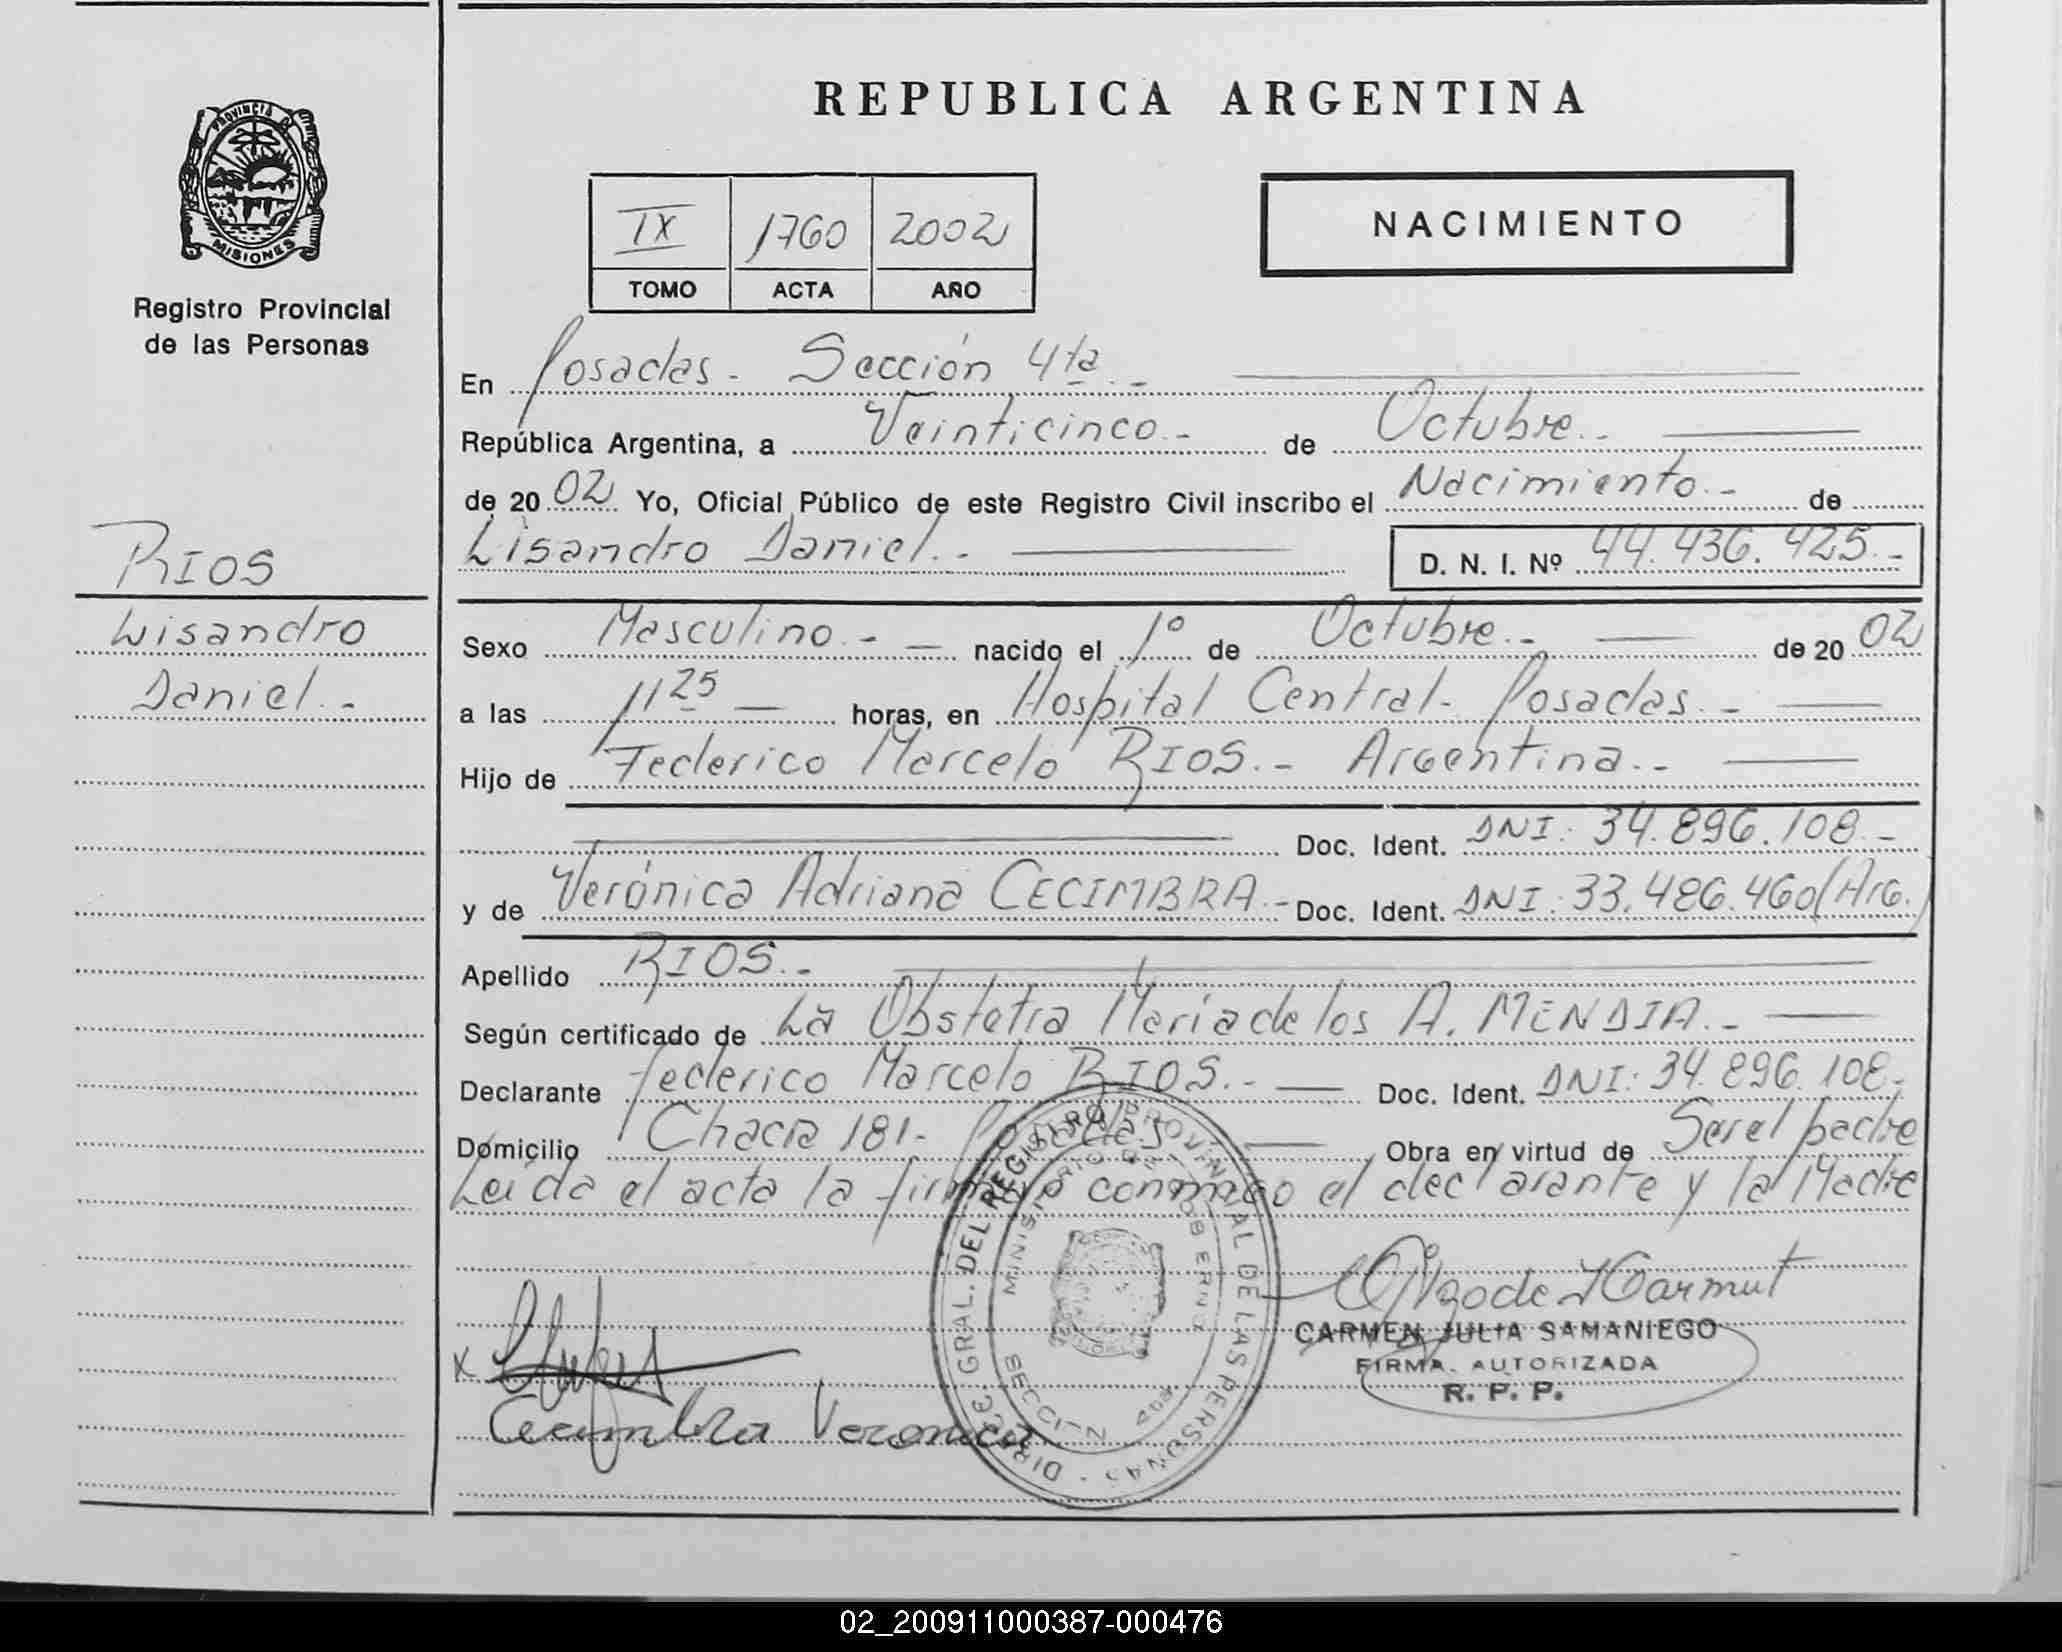 PROVINCIA DE
MISIONES
Registro Provincial
de las Personas
RIOS
Lisandro
Daniel.-
REPUBLICA ARGENTINA
IX 1760 2002
TOMO ACTA AÑO
NACIMIENTO
En Posadas.- Sección 4ta.-
República Argentina, a Veinticinco.- de Octubre.-
de 2002 Yo, Oficial Público de este Registro Civil inscribo el Nacimiento.- de
Lisandro Daniel.- D. N. I. Nº 44.436.425.-
Sexo Masculino.- nacido el 1º de Octubre.- de 2002
a las 11 25 horas, en Hospital Central- Posadas.-
Hijo de Federico Marcelo RIOS.- Argentina.-
Doc. Ident. DNI: 34.896.108.-
y de Verónica Adriana CECIMBRA.- Doc. Ident. DNI: 33.486.460 (Arg.)
Apellido RIOS.-
Según certificado de La Obstetra María de los A. MENDIA.-
Declarante Federico Marcelo RIOS.- Doc. Ident. DNI: 34.896.108.-
Domicilio Chacra 181- Posadas Obra en virtud de Ser el padre
Leída el acta la firmaro conmigo el declarante y la Madre
DIRECC. GRAL. DEL REGISTRO PROVINCIAL DE LAS PERSONAS
MINISTERIO DE GOBIERNO
SECCION
x
Cecimbra Veronica
CARMEN JULIA SAMANIEGO
FIRMA AUTORIZADA
R. P. P.
02_200911000387-000476